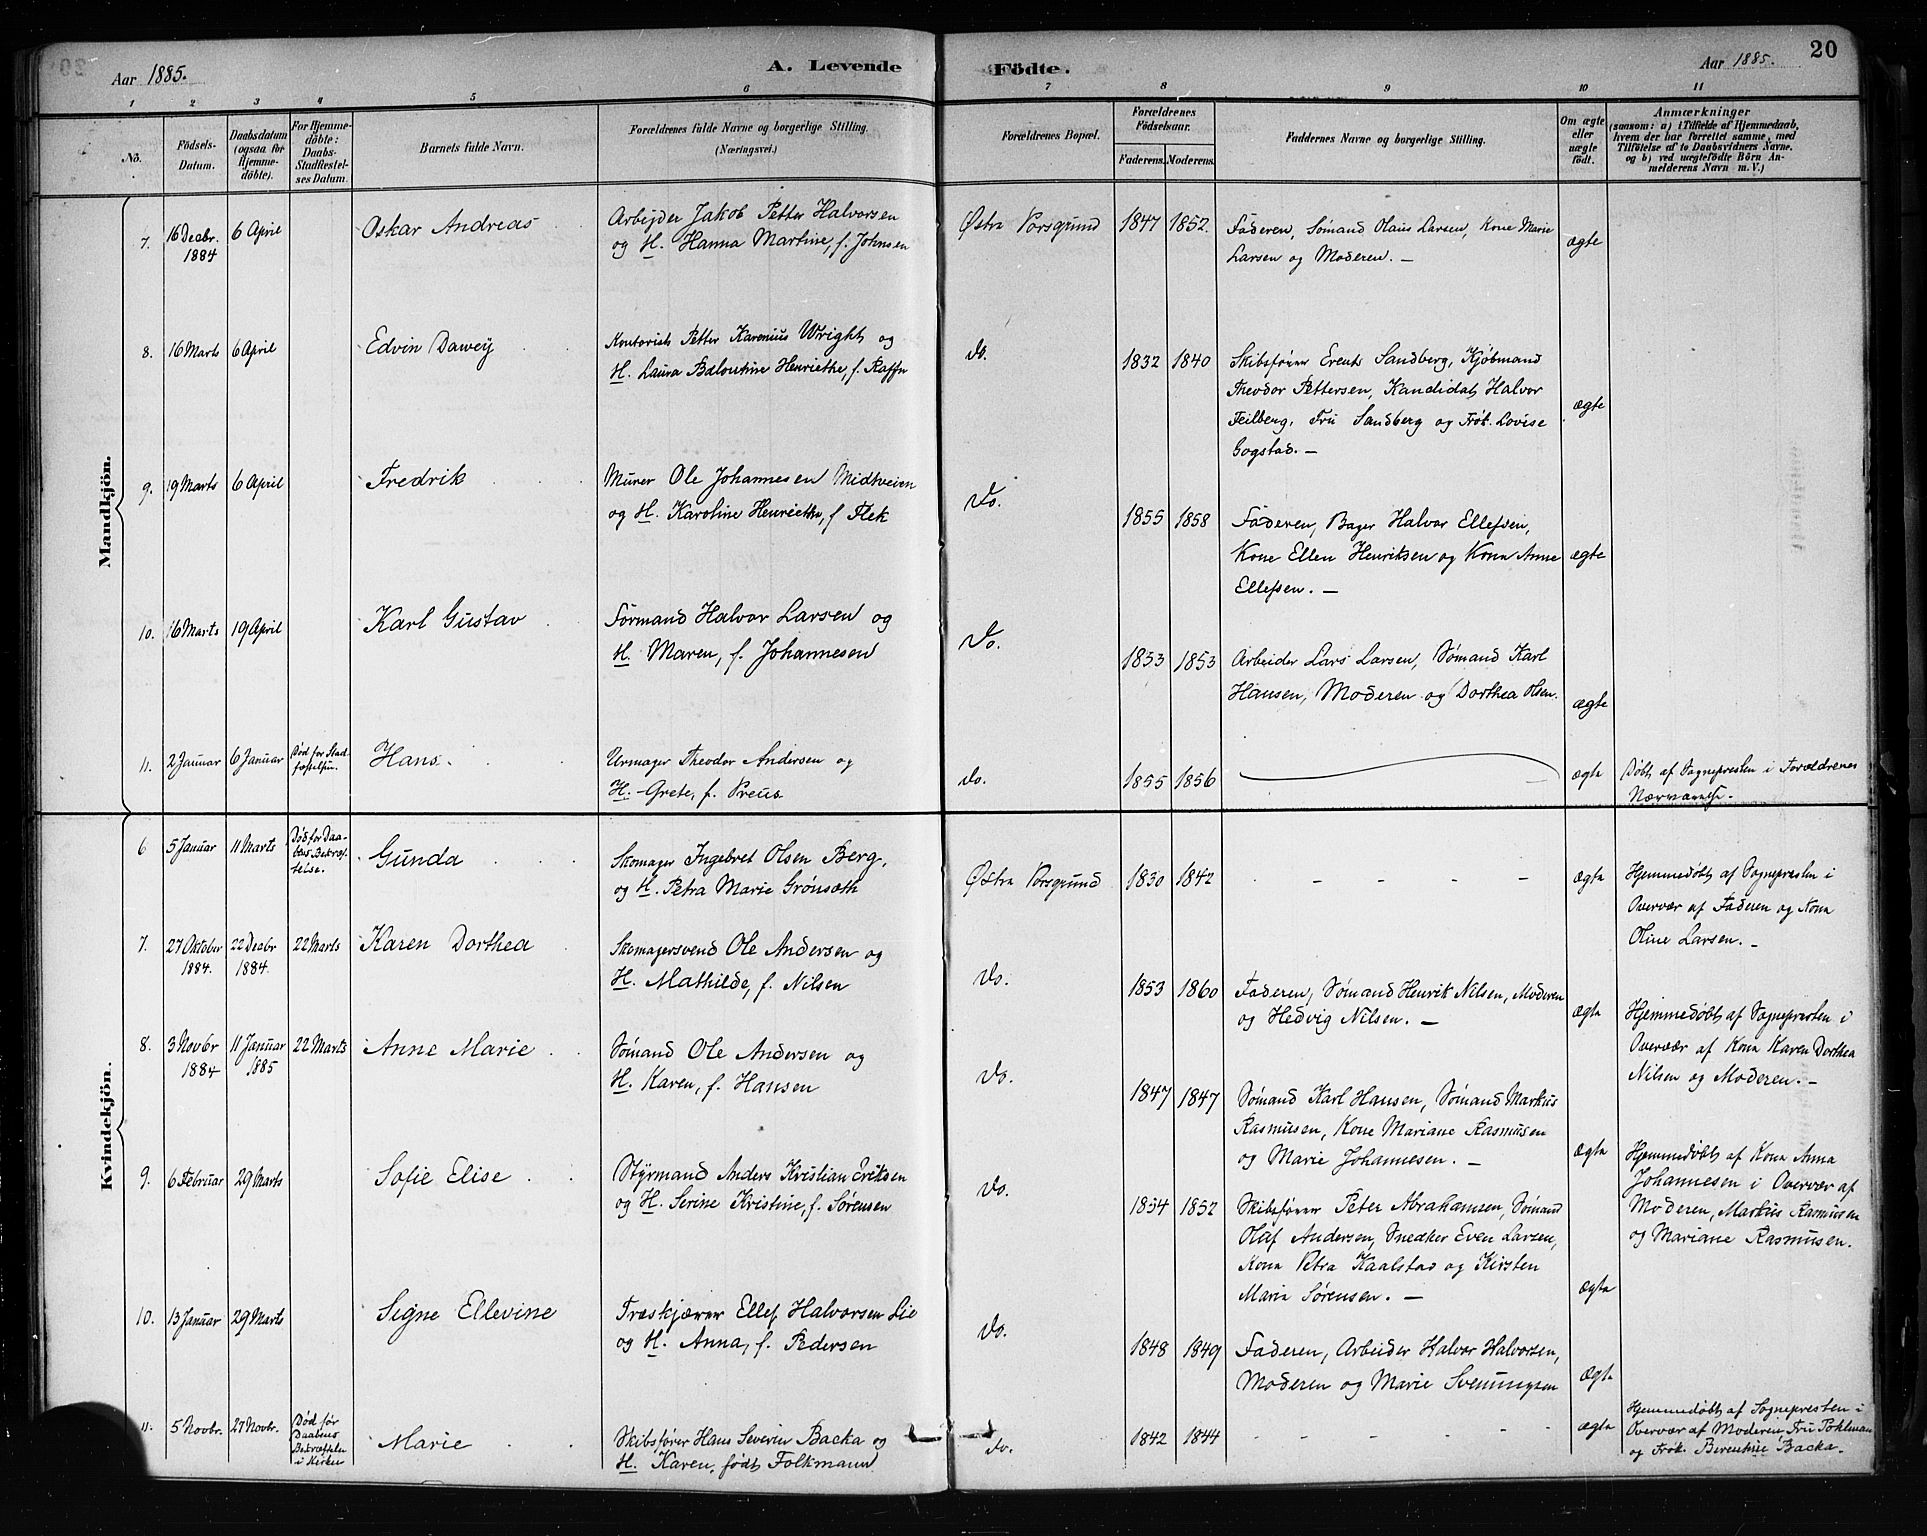 Aar 1885.
A. Levende Födte.
Aar 1885.
20
1 2 3 4 5 6 7 8 9 10 11
No.
Födsels-Datum.
Daabsdatum (ogsaa for Hjemme-döbte).
For Hjemme-döbte: Daabs-Stadfæstel-ses Datum.
Barnets fulde Navn.
Forældrenes fulde Navne og borgerlige Stilling. (Næringsvei.)
Forældrenes Bopæl.
Forældrenes Födselsaar.
Faderens. Moderens.
Faddernes Navne og borgerlige Stilling.
Om ægte eller uægte født.
Anmærkninger
(saasom: a) i Tilfælde af Hjemmedaab, hvem der har forrettet samme, med Tilföielse af to Daabsvidners Navne. og b) ved uægtefödte Börn An-melderens Navn m. V.)
Mandkjön.
7. 16 Decbr. 1884 6 April Oskar Andreas
Arbejder Jakob Petter Halvorsen
og H. Hanna Martine, f. Johnsen
Østre Porsgrund 1847 1852.
Faderen, Sømand Olaus Larsen, Kone Marie
Larsen og Moderen. —
ægte
8. 16 Marts 6 April Edvin Dawey
Kontorist Petter Karenius Wright og
H. Laura Balentine Henriette, f. Raffn
Do. 1832 1840
Skibsfører Erent Sandberg, Kjøbmand
Theodor Pettersen, Kandidat Halvor
Feilberg, Fru Sandberg og Frøk. Lovise
Gogstad. —
ægte
9. 19 Marts 6 April Fredrik
Murer Ole Johannesen Midtveien
og H. Karoline Henriette, f Flek
Do. 1855 1858
Faderen, Bager Halvor Ellefsen,
Kone Ellen Henriksen og Kone Anne
Ellefsen. —
ægte
10. 16 Marts 19 April Karl Gustav
Formand Halvor Larsen og
H. Maren, f. Johannesen
Do. 1853 1853
Arbeider Lars Larsen, Sømand Karl
Hansen, Moderen og Dorthea Olsen.
ægte
11. 2 Januar 6 Januar Død før Stad-fæstelsen. Hans.
Urmager Theodor Andersen og
H. Grete, f. Preus
Do. 1855 1856
ægte
Døbt af Sognepresten i Forældrenes
Nærværelse.
Kvindekjön.
6 5 Januar 11 Marts Død før Daa-bens Bekræf-telse. Gunda
Skomager Ingebret Olsen Berg,
og H. Petra Marie Grønsæth
Østre Porsgrund 1830 1842 . – – – –
ægte
Hjemmedøbt af Sognepresten i
Overvær af Faderen og Kone
Oline Larsen. –
7. 27 Oktober 1884. 22 Decbr 1884. 22 Marts Karen Dorthea
Skomagersvend Ole Andersen og
H. Mathilde, f. Nilsen
Do. 1853 1860
Faderen, Sømand Henrik Nilsen, Moderen
og Hedvig Nilsen. —
ægte
Hjemmedøbt af Sognepresten i
Overvær af Kone Karen Dorthea
Nilsen og Moderen. –
8. 3 Novbr 1884 11 Januar 1885 22 Marts Anne Marie
Sømand Ole Andersen og
H. Karen, f. Hansen
Do. 1847 1847
Sømand Karl Hansen, Sømand Markus
Rasmusen, Kone Mariane Rasmusen
og Marie Johannesen. —
ægte
Hjemmedøbt af Kone Anna
Johannesen i Overvær af
Moderen, Markus Rasmusen
og Mariane Rasmusen.
9. 6 Februar 29 Marts Sofie Elise
Styrmand Anders Kristian Eriksen
og H. Serine Kristine, f. Sørensen
Do. 1854 1852
Skibsfører Peter Abrahamsen, Sømand
Olaf Andersen, Snedker Even Larsen,
Kone Petra Kaalstad og Kirsten
Marie Sørensen. —
ægte
10. 13 Januar 29 Marts Signe Ellevine
Træskjærer Ellef Halvorsen Lie
og H. Anna, f. Pedersen
Do. 1848 1849
Faderen, Arbeider Halvor Halvorsen,
Moderen og Marie Svenungsen
ægte
11. 5 Novbr. 27 Novbr. Død før Daabens Bekræftelse i Kirken Marie
Skibsfører Hans Severin Backa og
H. Karen, født Folkmann
Do. 1842 1844 – – – – –
ægte
Hjemmedøbt af Sognepresten i
Overvær af Moderen Fru Pohlman
og Frøk. Berentine Backa.